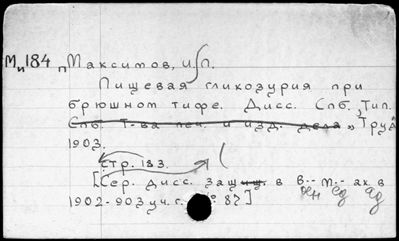 Ми184 Максимов, И. П.
Пищевая гликозурия при
брюшном тифе. Дисс. Спб, Тип.
Спб. Т-ва печ. и изд. дела "Труд"
1903.
Стр. 133.
[Сер. дисс. защищ. в В.-М.-ак. в
1902-903 уч. г. 87]